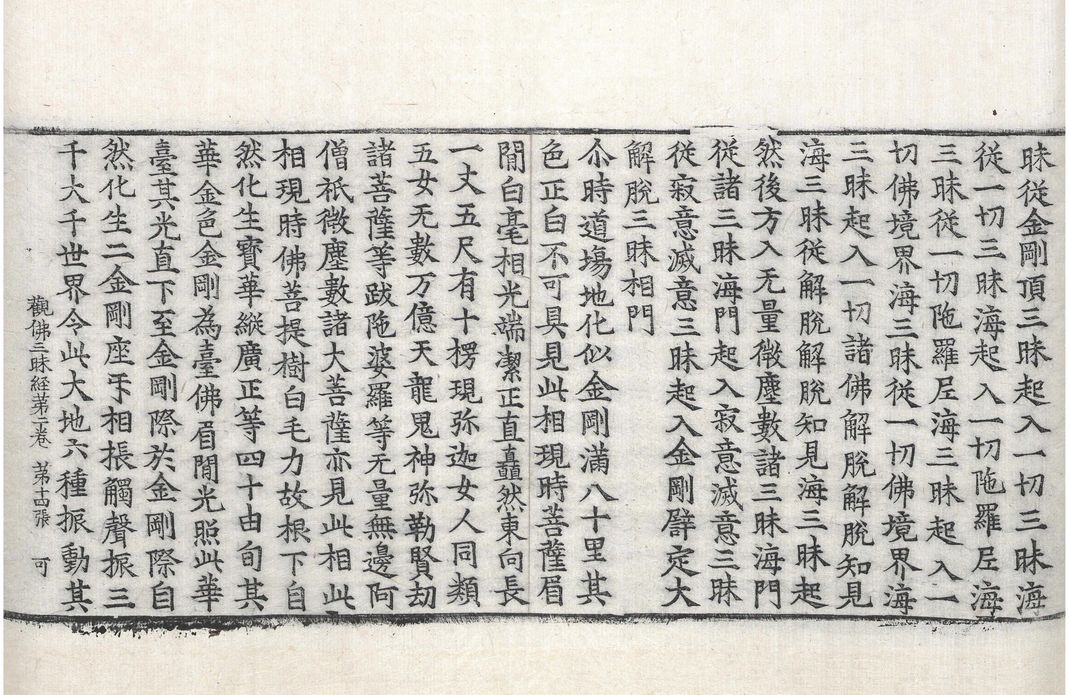 昧從金剛頂三昧起入一切三昧海
從一切三昧海起入一切陁羅𡰱海
三昧從一切陁羅𡰱海三昧起入一
切佛境界海三昧從一切佛境界海
三昧起入一切諸佛解脫解脫知見
海三昧從解脫解脫知見海三昧起
然後方入无量微塵數諸三昧海門
從諸三昧海門起入寂意滅意三昧
從寂意滅意三昧起入金剛譬定大
解脫三昧相門
尒時道場地化似金剛滿八十里其
色正白不可具見此相現時菩薩眉
閒白毫相光端潔正直矗然東向長
一丈五尺有十楞現弥迦女人同類
五女无數万億天龍鬼神弥勒賢劫
諸菩薩等跋陁婆羅等无量無邊阿
僧祇微塵數諸大菩薩亦見此相此
相現時佛菩提樹白毛力故根下自
然化生寶華縱廣正等四十由旬其
華金色金剛為臺佛眉閒光照此華
臺其光直下至金剛際於金剛際自
然化生二金剛座𠄔相振觸聲振三
千大千世界令此大地六種振動其
觀佛三昧経苐二卷　苐十四張　可